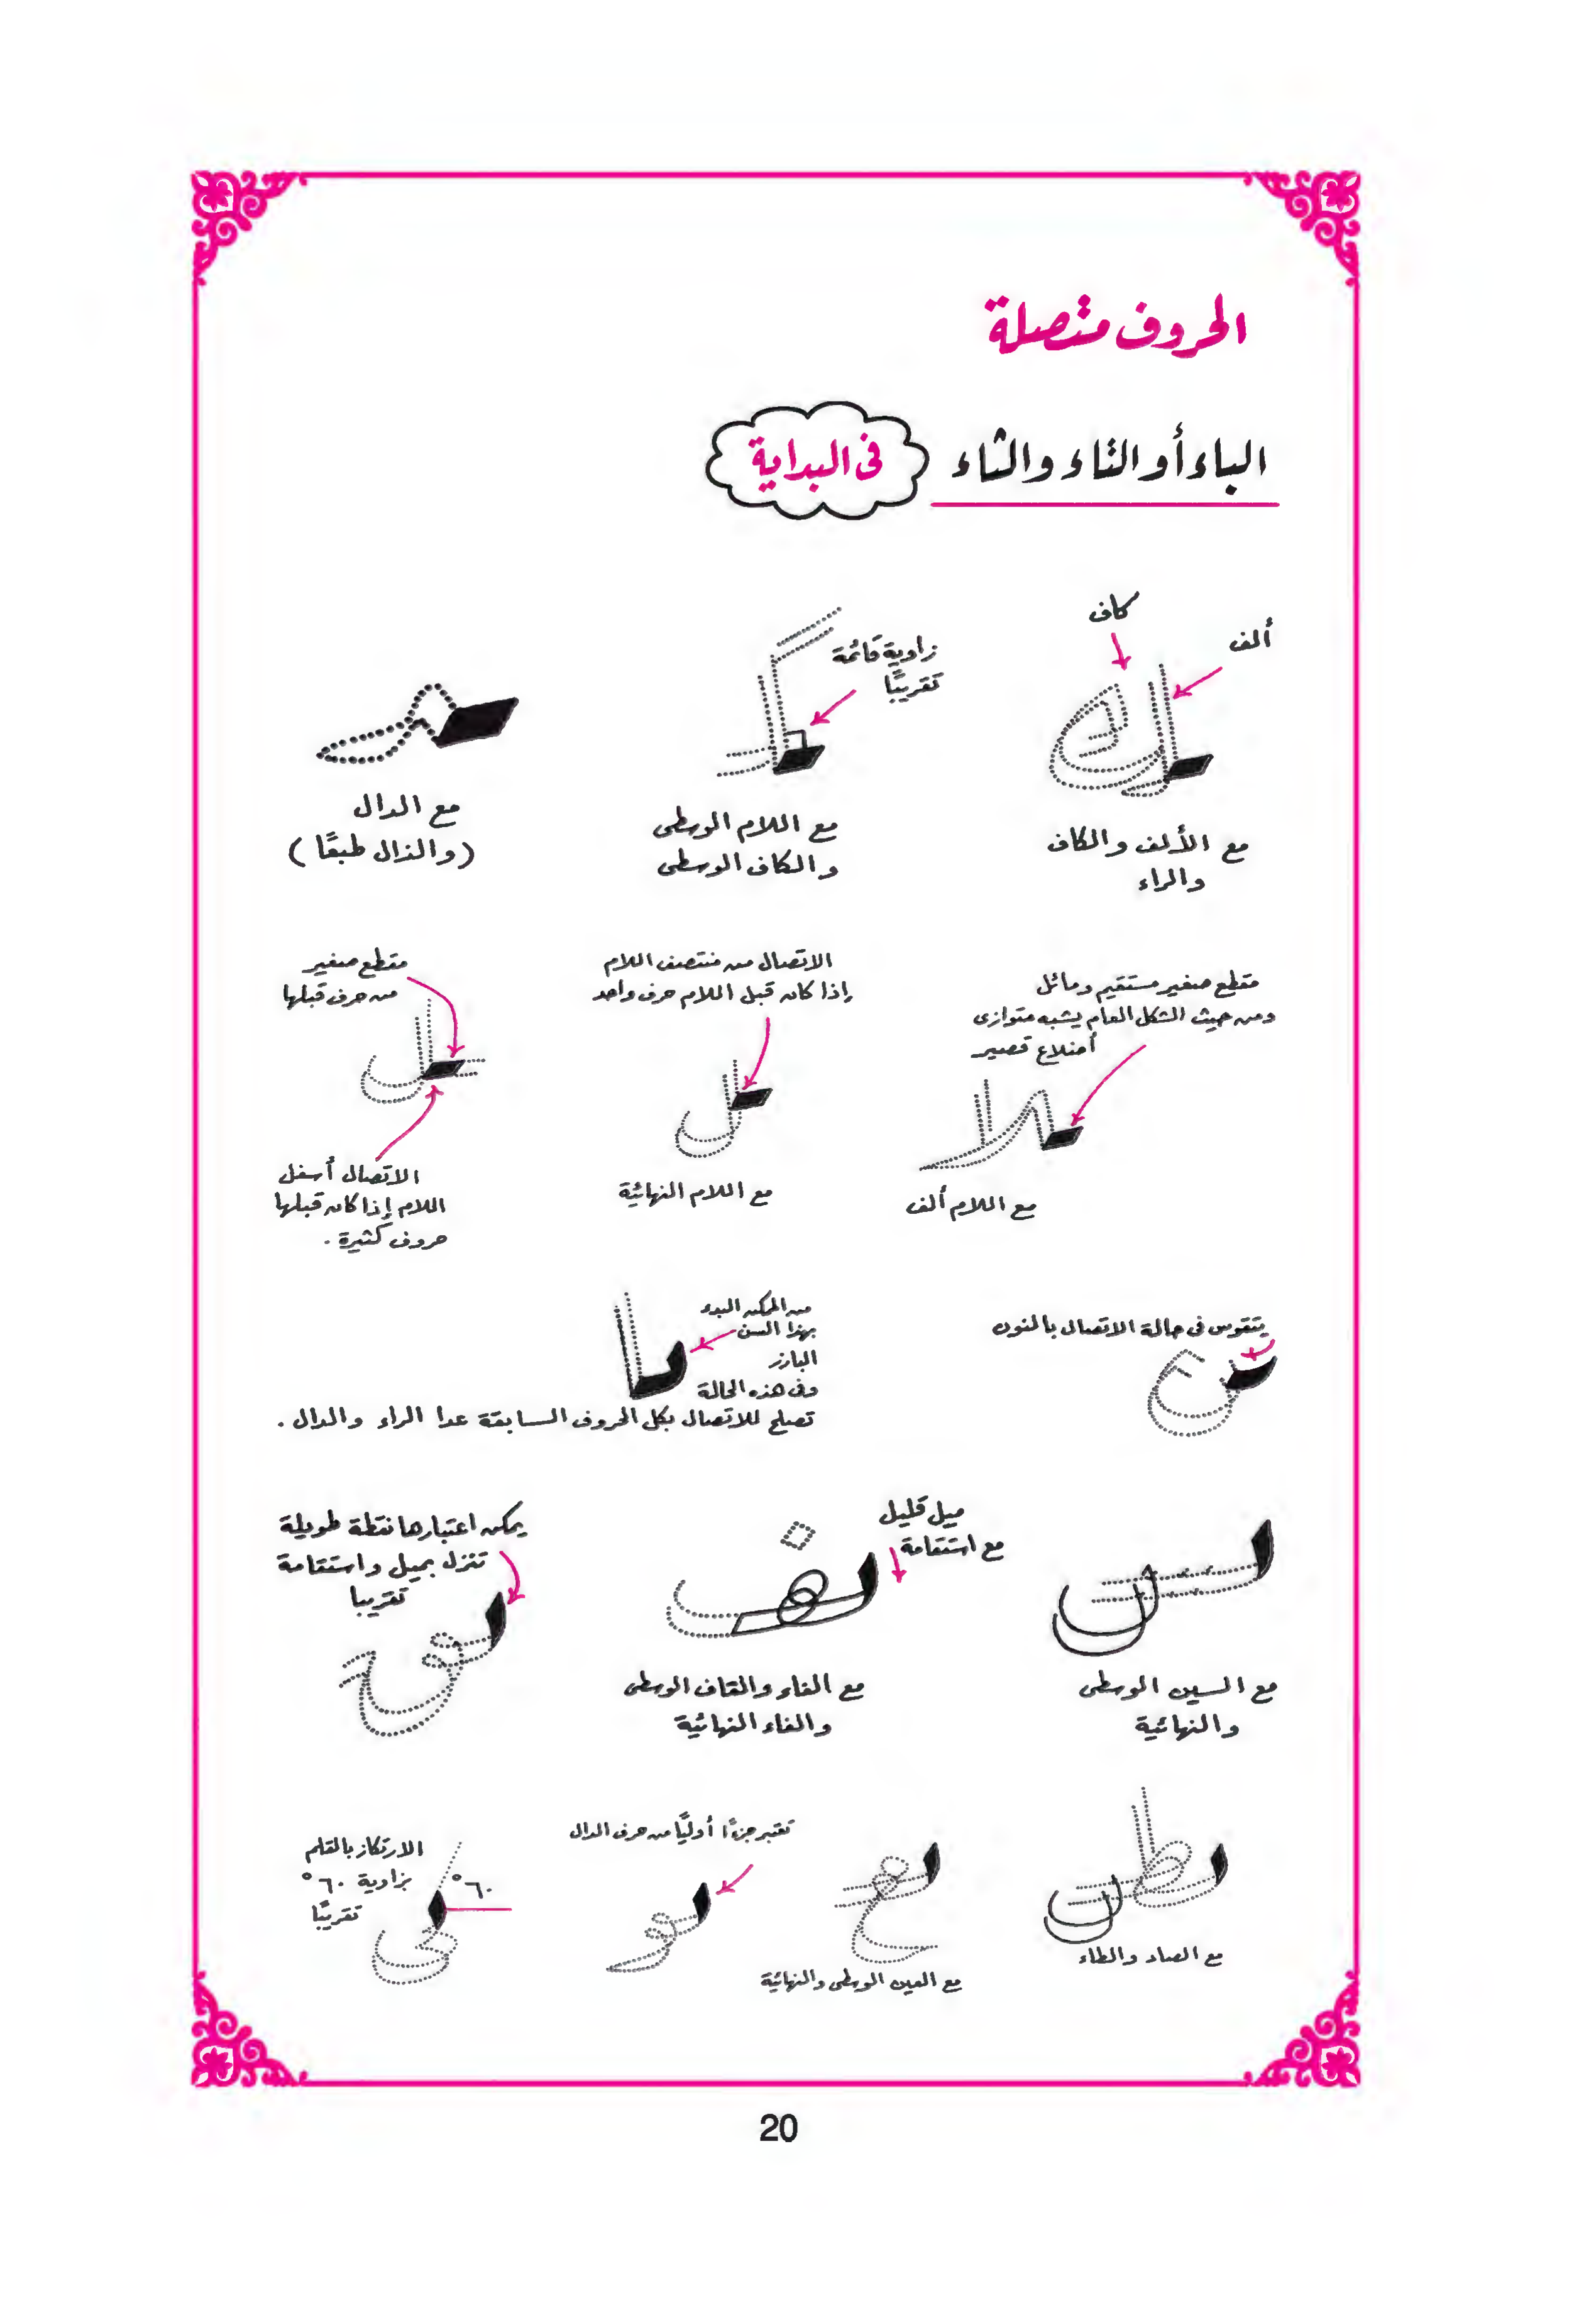 الحروف متصلة
الباء أو التاء والثاء
فى البداية
كاف
ألف
مع الألف والكاف
والراء
زاوية قائمة
تقريبًا
مع اللام الوسطى
والكاف الوسطى
مع الدال
(والذال طبعًا)
مقطع صغير مستقيم ومائل
ومن حيث الشكل العام يشبه متوازى
أضلاع قصير
مع اللام ألف
الاتصال من منتصف اللام
إذا كان قبل اللام حرف واحد
مع اللام النهائية
مقطع صغير
من حرف قبلها
الاتصال أسفل
اللام إذا كان قبلها
حروف كثيرة .
يتقوس فى حالة الاتصال بالنون
من الممكن البدء
بهذا السن
البارز
وفى هذه الحالة
تصلح للاتصال بكل الحروف السابقة عدا الراء والدال .
مع السين الوسطى
والنهائية
ميل قليل
مع استقامة
مع الفاء والقاف الوسطى
والفاء النهائية
يمكن اعتبارها نقطة طويلة
تنزل بميل واستقامة
تقريبا
مع الصاد والطاء
مع العين الوسطى والنهائية
تعتبر جزءًا أوليًا من حرف الدال
الارتكاز بالقلم
بزاوية ٦٠°
تقريبًا
٦٠°
20